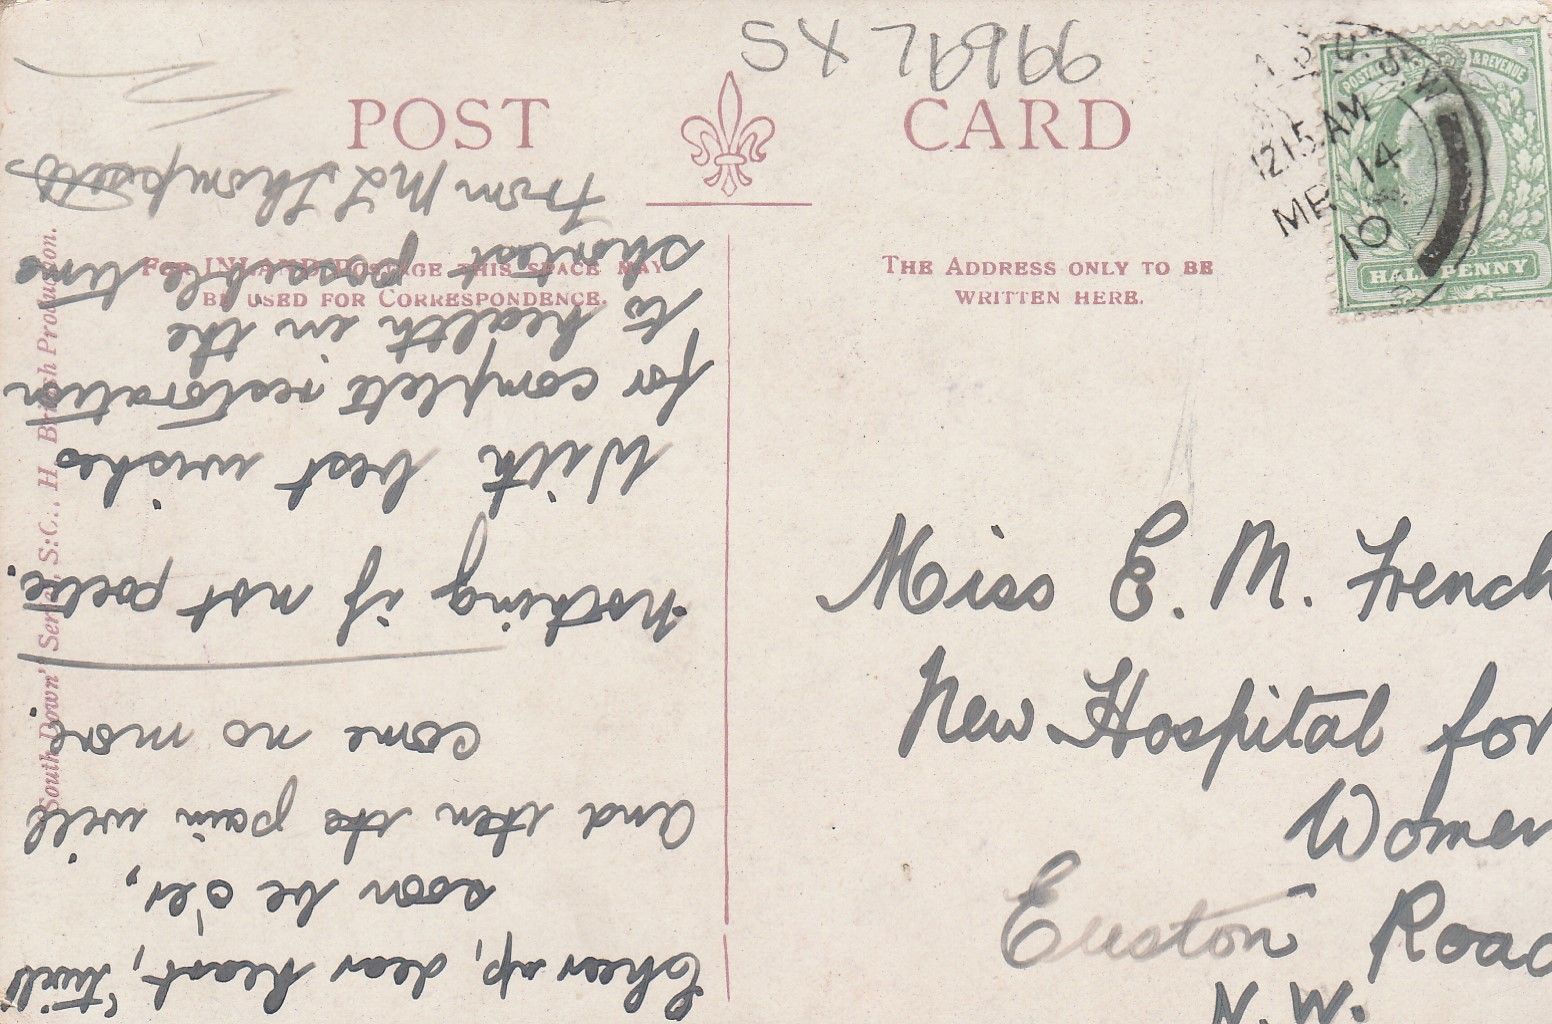 POST CARD
FOR INLAND POSTAGE THIS SPACE MAY
BE USED FOR CORRESPONDENCE.
THE ADDRESS ONLY TO BE
WRITTEN HERE.
"South Down" Series, S:C., H British Production.
POSTAGE & REVENUE
HALFPENNY
12 15 AM
MR 14
10
SX 7969
Cheer up, dear heart, 'twill
soon be o'er,
And then the pain will
come no more
nothing if not poetic.
With best wishes
for complete restoration
to health in the
shortest possible time
from
Miss E. M. French
New Hospital for
Women
Euston Road
N.W.